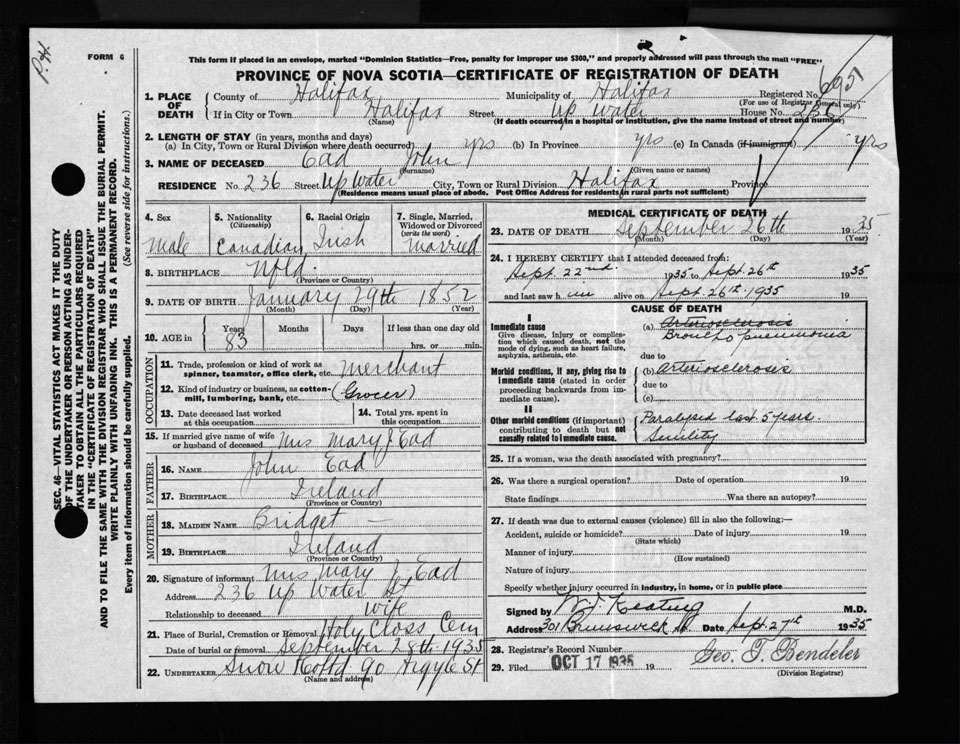 P.H.
FORM 6
This form if placed in an envelope, marked "Dominion Statistics—Free, penalty for improper use $300," and properly addressed will pass through the mail "FREE"
PROVINCE OF NOVA SCOTIA—CERTIFICATE OF REGISTRATION OF DEATH
6951
1. PLACE OF DEATH
County of Halifax Municipality of Halifax Registered No.
(For use of Registrar General only)
If in City or Town Halifax Street Up Water House No. 236
(Name) (If death occurred in a hospital or institution, give the name instead of street and number)
2. LENGTH OF STAY (in years, months and days)
(a) In City, Town or Rural Division where death occurred yrs (b) In Province yrs (c) In Canada (if immigrant) yrs
3. NAME OF DECEASED Ead John
(Surname) (Given name or names)
RESIDENCE No. 236 Street Up Water City, Town or Rural Division Halifax Province
(Residence means usual place of abode. Post Office Address for residents in rural parts not sufficient)
4. Sex 5. Nationality (Citizenship) 6. Racial Origin 7. Single, Married, Widowed or Divorced (write the word)
Male Canadian Irish Married
8. BIRTHPLACE Nfld.
(Province or Country)
9. DATE OF BIRTH January 29th 1852
(Month) (Day) (Year)
10. AGE in Years Months Days If less than one day old
83 hrs. or min.
OCCUPATION
11. Trade, profession or kind of work as spinner, teamster, office clerk, etc. Merchant
12. Kind of industry or business, as cotton-mill, lumbering, bank, etc. (Grocer)
13. Date deceased last worked at this occupation
14. Total yrs. spent in this occupation
15. If married give name of wife or husband of deceased Mrs Mary J Ead
FATHER
16. NAME John Ead
17. BIRTHPLACE Ireland
(Province or Country)
MOTHER
18. MAIDEN NAME Bridget —
19. BIRTHPLACE Ireland
(Province or Country)
20. Signature of informant Mrs Mary J Ead
Address 236 Up Water St
Relationship to deceased wife
21. Place of Burial, Cremation or Removal Holy Closs Cem
Date of burial or removal September 28th 1935
22. UNDERTAKER Snow Co Ltd 90 Argyle St
(Name and address)
MEDICAL CERTIFICATE OF DEATH
23. DATE OF DEATH September 26th 1935
(Month) (Day) (Year)
24. I HEREBY CERTIFY that I attended deceased from:
Sept. 22nd 1935 to Sept. 26th 1935
and last saw him alive on Sept. 26th. 1935 19
CAUSE OF DEATH
I
Immediate cause
Give disease, injury or complication which caused death, not the mode of dying, such as heart failure, asphyxia, asthenia, etc.
(a) Arteriosclerosis
Broncho pneumonia
due to
Morbid conditions, if any, giving rise to immediate cause (stated in order proceeding backwards from immediate cause).
(b) Arteriosclerosis
due to
(c)
II
Other morbid conditions (if important) contributing to death but not causally related to immediate cause.
Paralysed last 5 years.
Senility
25. If a woman, was the death associated with pregnancy?
26. Was there a surgical operation? Date of operation 19
State findings Was there an autopsy?
27. If death was due to external causes (violence) fill in also the following:—
Accident, suicide or homicide? Date of injury 19
(State which)
Manner of injury
(How sustained)
Nature of injury
Specify whether injury occurred in industry, in home, or in public place
Signed by W.J. Keating M.D.
Address 301 Brunswick St. Date Sept. 27th 1935
28. Registrar's Record Number
29. Filed OCT 17 1935 19 Geo. T. Bendeler
(Division Registrar)
SEC. 46—VITAL STATISTICS ACT MAKES IT THE DUTY
OF THE UNDERTAKER OR PERSON ACTING AS UNDER-
TAKER TO OBTAIN ALL THE PARTICULARS REQUIRED
IN THE "CERTIFICATE OF REGISTRATION OF DEATH"
AND TO FILE THE SAME WITH THE DIVISION REGISTRAR WHO SHALL ISSUE THE BURIAL PERMIT.
WRITE PLAINLY WITH UNFADING INK. THIS IS A PERMANENT RECORD.
Every item of information should be carefully supplied. (See reverse side for instructions.)